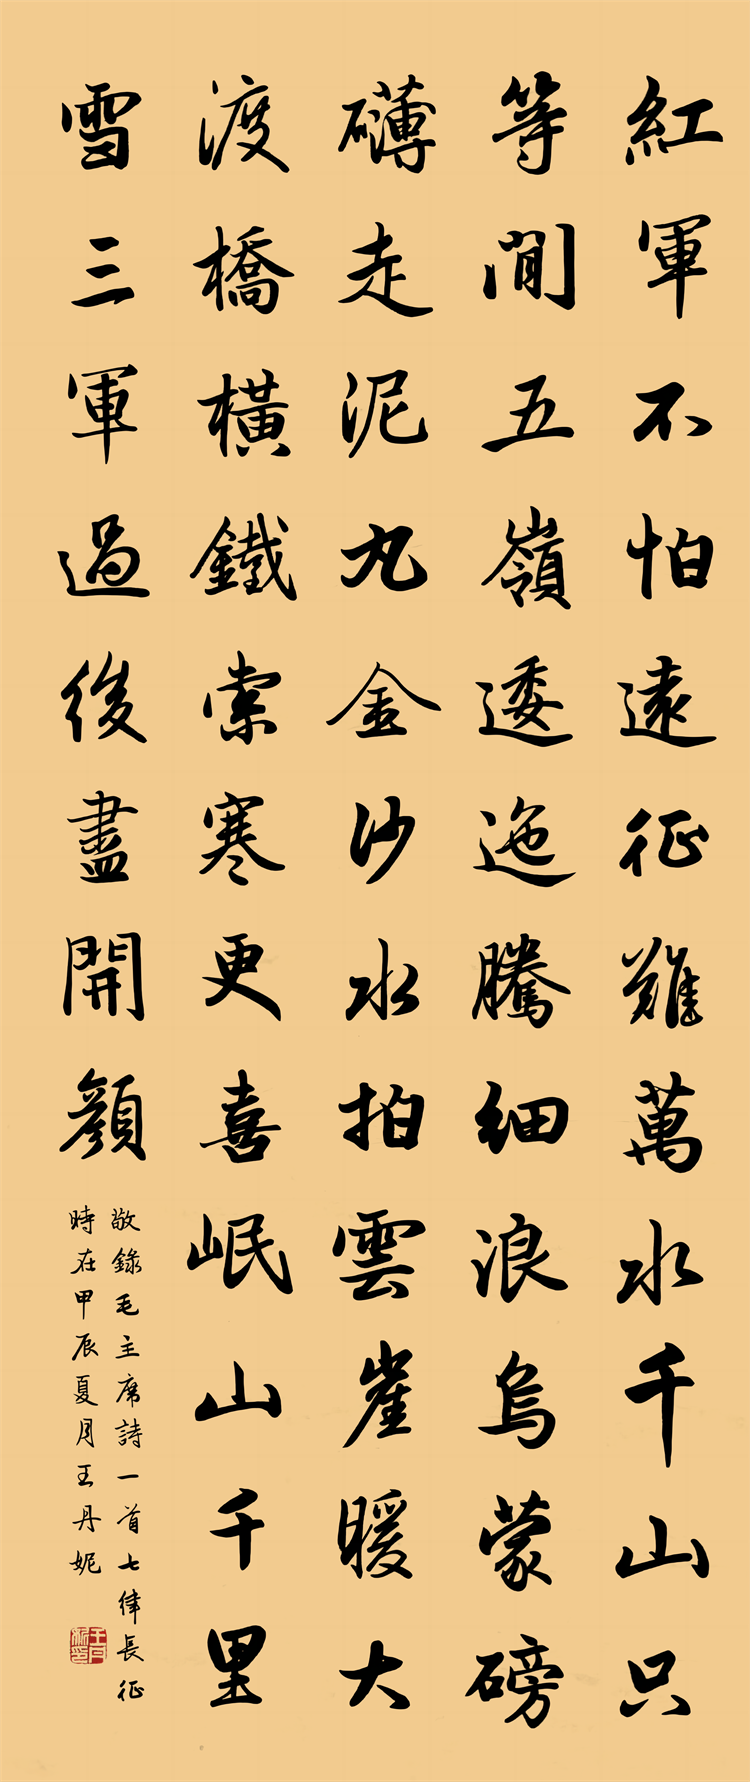 紅軍不怕遠征難萬水千山只
等閒五嶺逶迤騰細浪烏蒙磅
礴走泥丸金沙水拍雲崖暖大
渡橋橫鐵索寒更喜岷山千里
雪三軍過後盡開顏
敬錄毛主席詩一首七律長征
時在甲辰夏月王丹妮